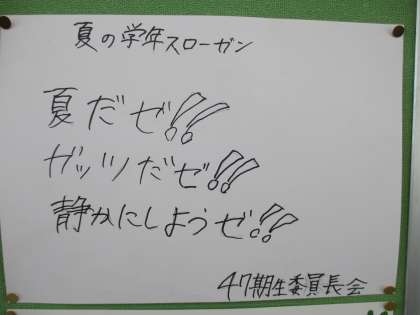 夏の学年スローガン
夏だゼ!!
ガッツだゼ!!
静かにしようゼ!!
47期生委員長会